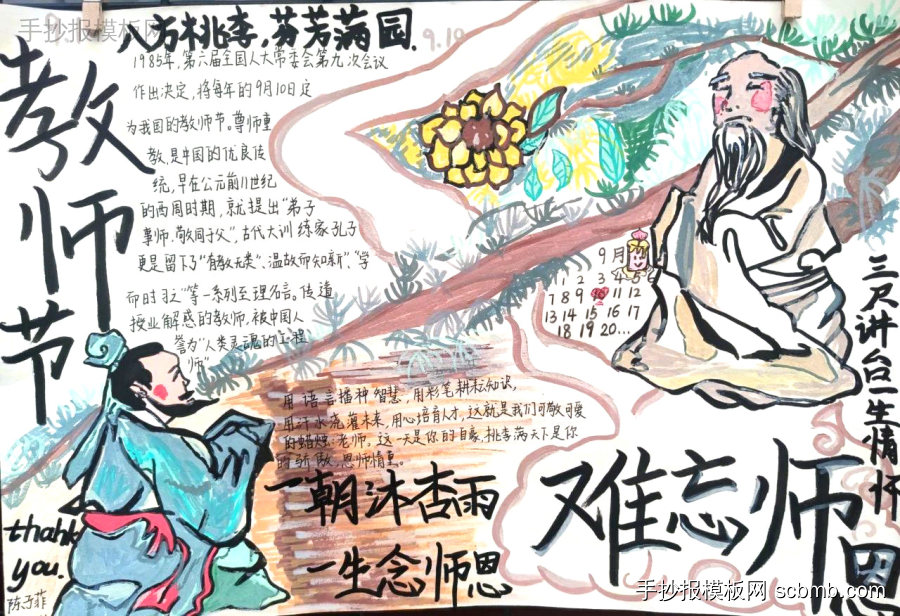 手抄报模板网
八方桃李,芬芳满园.
9.10
教师节
1985年,第六届全国人大常委会第九次会议
作出决定,将每年的9月10日定
为我国的教师节。尊师重
教,是中国的优良传
统,早在公元前11世纪
的西周时期,就提出“弟子
事师,敬同于父”,古代大训练家孔子
更是留下了“有教无类”、“温故而知新”、“学
而时习之”等一系列至理名言。传道
授业解惑的教师,被中国人
誉为“人类灵魂的工程
师”
9月
1 2 3 4 5 6
7 8 9 10 11 12
13 14 15 16 17
18 19 20...
三尺讲台一生情怀
用语言播种智慧,用彩笔耕耘知识,
用汗水浇灌未来,用心培育人才,这就是我们可敬可爱
的蜡烛,老师,这一天是你的自豪,桃李满天下是你
的骄傲,恩师情重。
一朝沐杏雨
一生念师恩
难忘师恩
thank
you.
陈子菲
手抄报模板网 scbmb.com